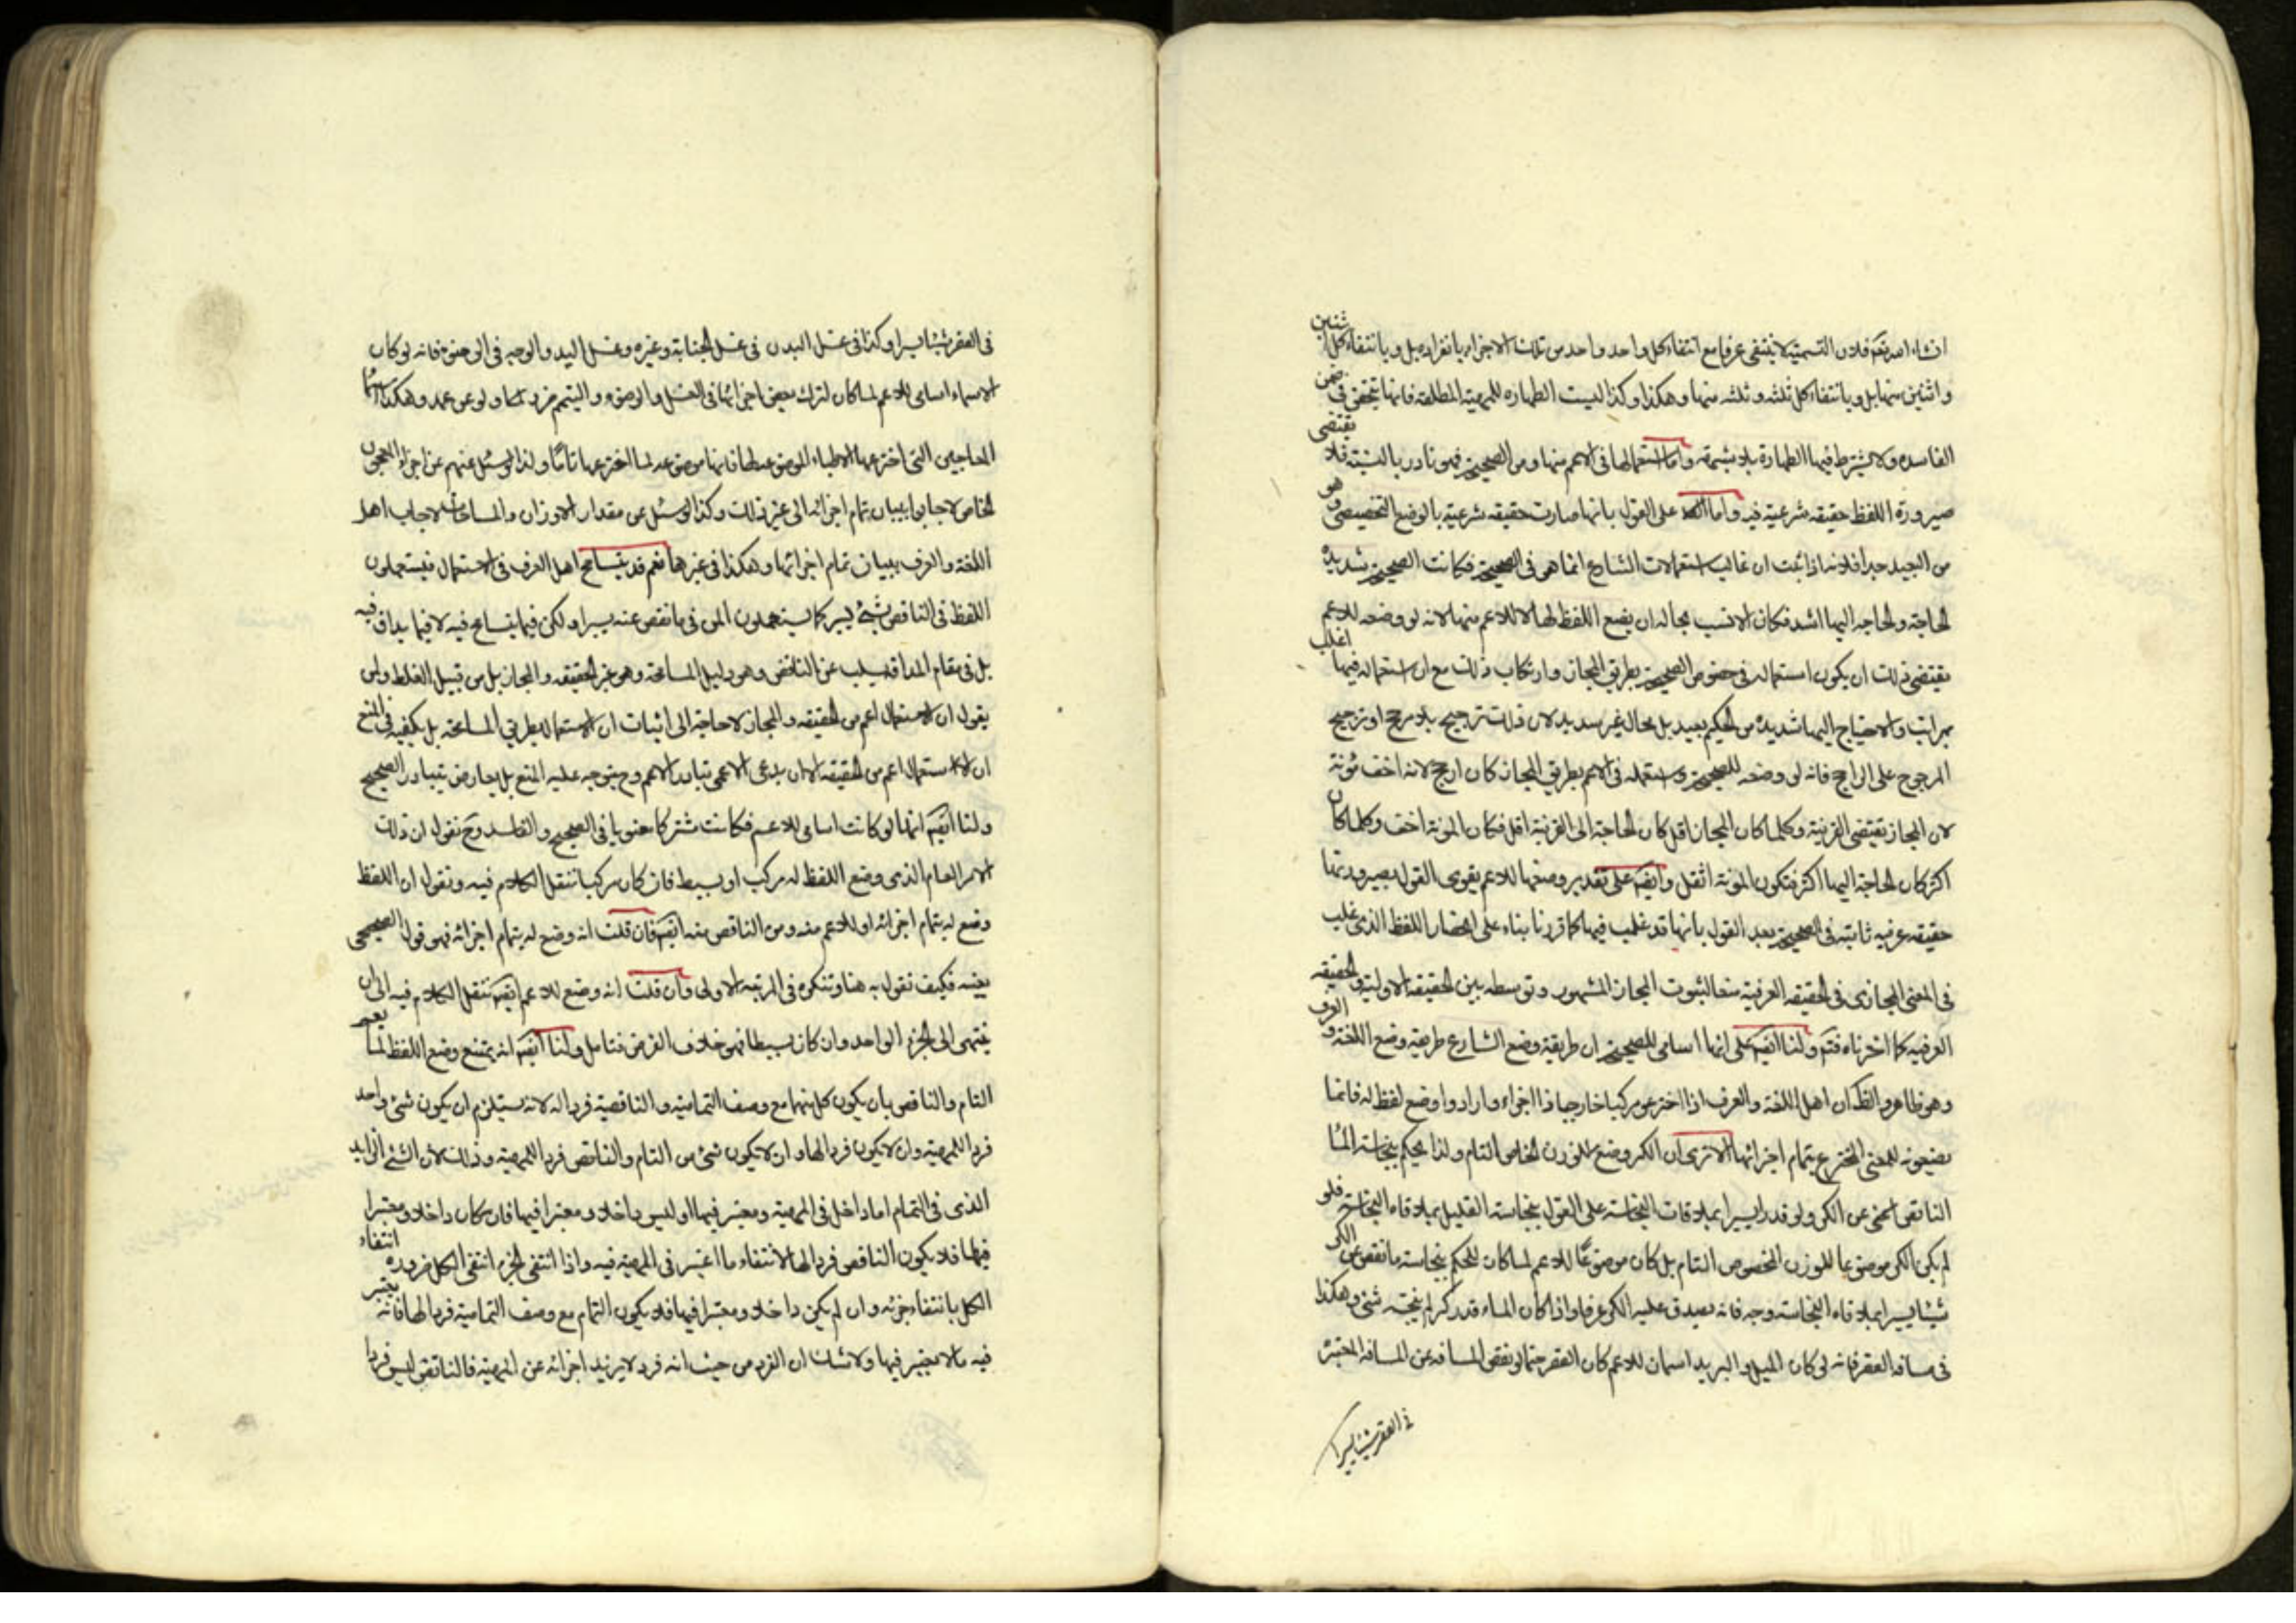 انشاء الله تعالى فلان التسمية لا ينتفى عرفا مع انتفاء كل واحد واحد من تلك الاجزاء بانفراده بل وبانتفاء كل اثنين
واثنين منها بل وبانتفاء كل ثلثه وثلثه منها وهكذا وكذا ليست الطهارة للمهية المطلقه فانها يتحقق فى ضمن
الفاسده ولا يشترط فيها الطهارة واما استعمالها فى الاعم منها ومن الصحيحة فهو نادر بالنسبة فلا يقتضى
صيرورة اللفظ حقيقه شرعية فيه واما على القول بانها صارت حقيقه شرعية بالوضع التخصيصى وهو
من البعيد جدا فلانه اذا ثبت ان غالب استعمالات الشارع انما هو فى الصحيحة فكانت الصحيحة شديدة
الحاجة والحاجه اليها اشد فكان الانسب بحاله ان يضع اللفظ لها لا للاعم منها لانه لو وضعه للاعم
يقتضى ذلك ان يكون استعماله فى خصوص الصحيحة بطريق المجاز وارتكاب ذلك مع ان استعماله فيها اغلب
بمراتب والاحتياج اليها شديدة من الحكيم بعيد بل محال غير سديد لان ذلك ترجيح بلا مرجح او ترجيح
المرجوح على الراجح فانه لو وضعه للصحيحة واستعمله فى الاعم بطريق المجاز كان ارجح لانه اخف مؤنة
لان المجاز يقتضى القرينة وكلما كان المجاز اقل كان الحاجة الى القرينة اقل فكان المونة اخف وكلما كان
اكثر كان الحاجة اليها اكثر فتكون المونة اثقل وايضا على تقدير وضعها للاعم يقوى القول بصيرورتها
حقيقه عرفيه ثانية فى الصحيحة بعد القول بانها قد غلب فيها كما قررنا بناء على احضار اللفظ الذى غلب
فى المعنى المجازى فى الحقيقه العرفية منعا لثبوت المجاز المشهور وتوسطه بين الحقيقه الاولية والحقيقه
العرفيه كما اخرناه فتم ولنا ايضا على انها اسامى للصحيحة ان طريقة وضع الشارع طريقة وضع اللغة والعرف
وهو ظاهر والظ ان اهل اللغة والعرف اذا اخترعو مركبا خارجيا ذا اجزاء وارادوا وضع لفظ له فانما
يضيعونه للمعنى المخترع بتمام اجزائها الا ترى ان الكر وضع للوزن الخاص التام ولذا يحكم بنجاسة الماء
الناقص عن الكر ولو قدرا يسيرا بملاقات النجاسة على القول بنجاسة القليل بملاقاه النجاسة فلو
لم يكن الكر موضوعا للوزن المخصوص التام بل كان موضوعا للاعم لما كان للحكم بنجاسة ما نقص عن الكر
شيئا يسيرا بملاقاه النجاسة وجه فانه يصدق عليه الكر عرفا واذا كان الماء قدر كر لم ينجسه شئ وهكذا
فى مسافه القصر فانه لو كان الميل والبريد اسمان للاعم كان القصر حتما لو نقص المسافه عن المسافه المعتبرة
فى القصر شيئا يسيرا
فى القصر شيئا يسيرا وكذا فى غسل البدن فى غسل الجنابة وغيره وغسل اليد والوجه فى الوضوء فانه لو كان
الاسماء اسامى للاعم لما كان لترك بعض اجزائها فى الغسل والوضوء والتيمم ولو عن عمد وهكذا اسماء
المعاجين التى اخترعها الاطباء الموضوعه لها فانها موضوعه لما اخترعها تاما ولذا لو سئل عنهم عن اجزاء المعجون
الخاص لاجابوا ببيان تمام اجزائه الى غير ذلك وكذا لو سئل عن مقدار الاوزان والمساحات لاجاب اهل
اللغة والعرف ببيان تمام اجزائها وهكذا فى غيرها نعم قد يتسامح اهل العرف فى الاستعمال فيستعملون
اللفظ فى الناقص بشئ يسير كما يستعملون المن فى ما نقص عنه يسيرا ولكن فيما يتسامح فيه لا فيما يداق فيه
بل فى مقام المداقه يسلب عن الناقص وهو دليل المسامحة وهو غير الحقيقه والمجاز بل من قبيل الغلط ولمن
يقول ان الاستعمال اعم من الحقيقه والمجاز لا حاجة الى اثبات ان الاستعمال بطريق المسامحة بل يكفيه فى المنع
ان الاستعمال اعم من الحقيقه الا ان يدعى الاعمى تبادر الاعم وح يتوجه عليه المنع بل يعارض بتبادر الصحيح
ولنا ايضا انها لو كانت اسامى للاعم فكانت مشتركا معنويا فى الصحيح والفاسد وح نقول ان ذلك
الامر العام الذى وضع اللفظ له مركب او بسيط فان كان مركبا ننقل الكلام فيه ونقول ان اللفظ
وضع له بتمام اجزائه او للاعم منه ومن الناقص منه ايضا فان قلت انه وضع له بتمام اجزائه فهو قول الصحيحى
بعينه فكيف نقول به هنا وتنكره فى المرتبة الاولى وان قلت انه وضع للاعم ايضا ننقل الكلام فيه الى ان
ينتهى الى الجزء الواحد وان كان بسيطا فهو خلاف الفرض فتامل ولنا ايضا انه يمتنع وضع اللفظ لما يعم
التام والناقص بان يكون كل منهما مع وصف التمامية والناقصية فردا له لانه يستلزم ان يكون شئ واحد
فردا للمهية وان لا يكون فردا لها وان لا يكون شئ من التام والناقص فردا للمهية وذلك لان الشئ الزايد
الذى فى التمام اما داخل فى المهية ومعتبر فيها او ليس داخلا ومعتبرا فيها فان كان داخلا ومعتبرا
فيها فلا يكون الناقص فردا لها لانتفاء ما اعتبر فى المهية فيه واذا انتفى الجزء انتفى الكل ضرورة انتفاء
الكل بانتفاء جزئه وان لم يكن داخلا ومعتبرا فيها فلا يكون التمام مع وصف التمامية فردا لها فانه يعتبر
فيه ما لا يعتبر فيها ولا شك ان الفرد من حيث انه فرد لا يزيد اجزائه عن المهية فالناقص ليس فردا